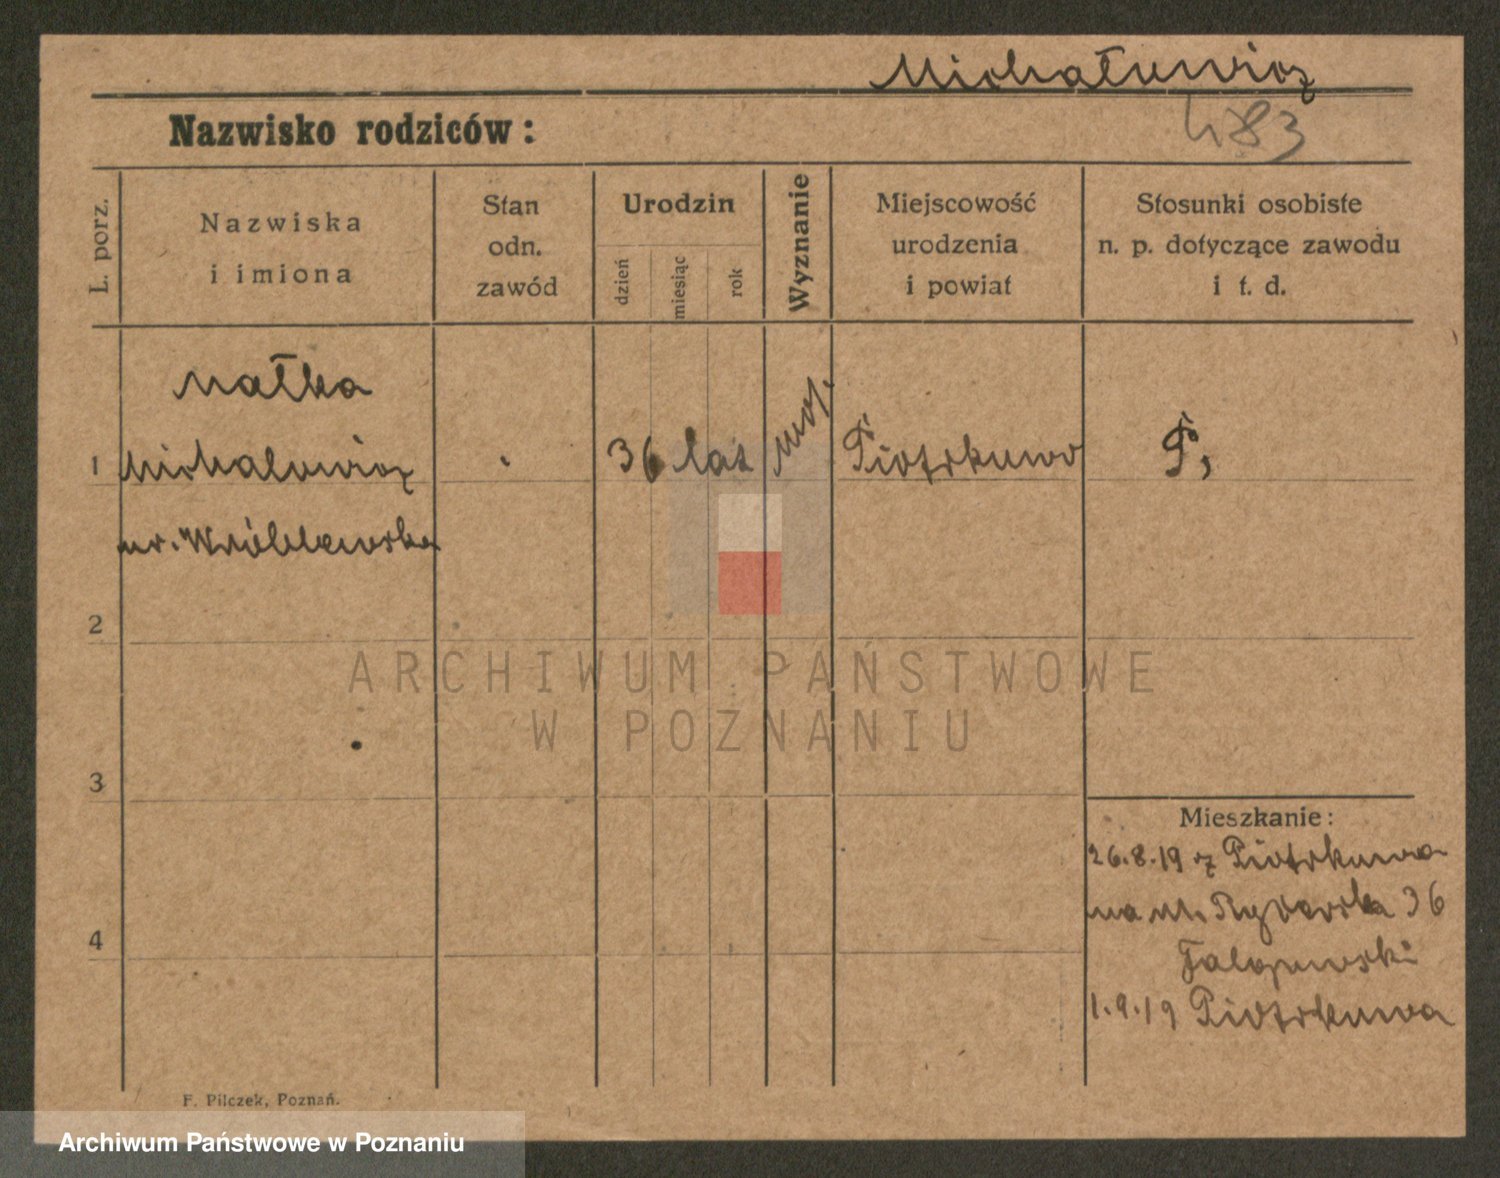 Michałowicz
483
Nazwisko rodziców:
L. porz.
Nazwiska
i imiona
Stan
odn.
zawód
Urodzin
dzień
miesiąc
rok
Wyznanie
Miejscowość
urodzenia
i powiat
Stosunki osobiste
n. p. dotyczące zawodu
i t. d.
Małka
1 Michalowicz 36 lat moj. Piotrkowo P,
ur. Wróblewska
2
ARCHIWUM PAŃSTWOWE
W POZNANIU
3
Mieszkanie:
26.8.19 z Piotrkowa
na ul. Rycerska 36
4
1.9.19 Piotrkowa
F. Pilczek, Poznań.
Archiwum Państwowe w Poznaniu